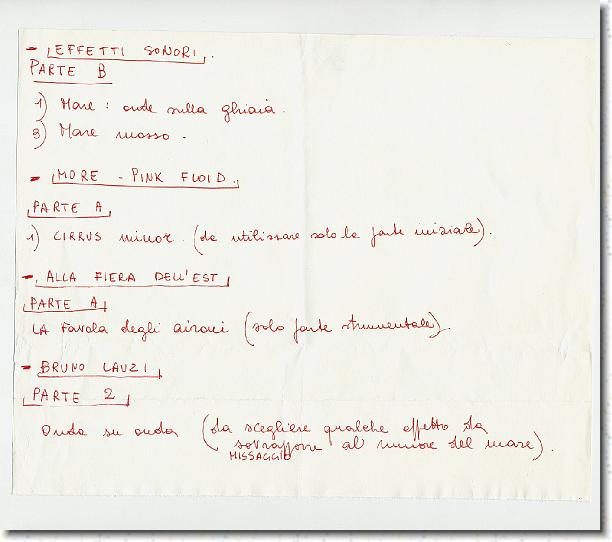 - EFFETTI SONORI.
PARTE B
1) Mare: onde sulla ghiaia.
3) Mare mosso.
- MORE - PINK FLOID.
PARTE A
1) CIRRUS minor. (da utilizzare solo la parte iniziale).
- ALLA FIERA DELL'EST
PARTE A
LA favola degli aironi (solo parte strumentale).
- BRUNO LAUZI
PARTE 2
Onda su onda (da scegliere qualche effetto da
sovrapporre al rumore del mare).
MISSAGGIO